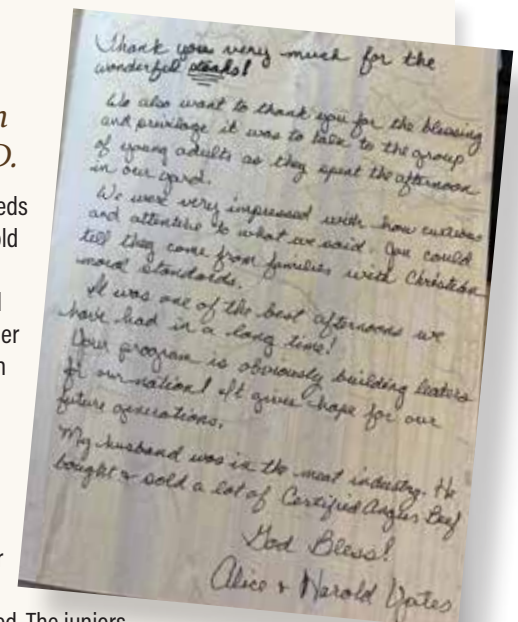 n
D.
eds
old
er
n
r
ed. The juniors
Thank you very much for the
wonderful steaks!
We also want to thank you for the blessing
and privilege it was to talk to the group
of young adults as they spent the afternoon
in our yard.
We were very impressed with how curious
and attentive to what we said. You could
tell they come from families with Christian
moral standards.
It was one of the best afternoons we
have had in a long time!
Your program is obviously building leaders
for our nation! It gives hope for our
future generations.
My husband was in the meat industry. He
bought & sold a lot of Certified Angus Beef
God Bless!
Alice & Harold Yates